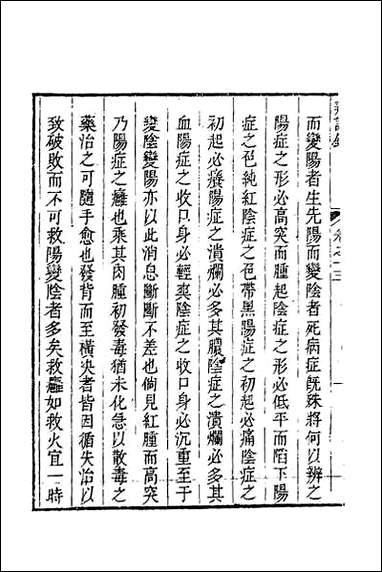 而變陽者生先陽而變陰者死病症旣殊將何以辨之
陽症之形必高突而腫起陰症之形必低平而陷下陽
症之色純紅陰症之色帶黑陽症之初起必痛陰症之
初起必癢陽症之潰爛必多其膿陰症之潰爛必多其
血陽症之收口身必輕爽陰症之收口身必沉重至于
變陰變陽亦以此消息斷斷不差也倘見紅腫而高突
乃陽症之癰也乘其肉腫初發毒猶未化急以散毒之
藥治之可隨手愈也發背而至橫决者皆因循失治以
致破敗而不可救陽變陰者多矣救癰如救火宜一時